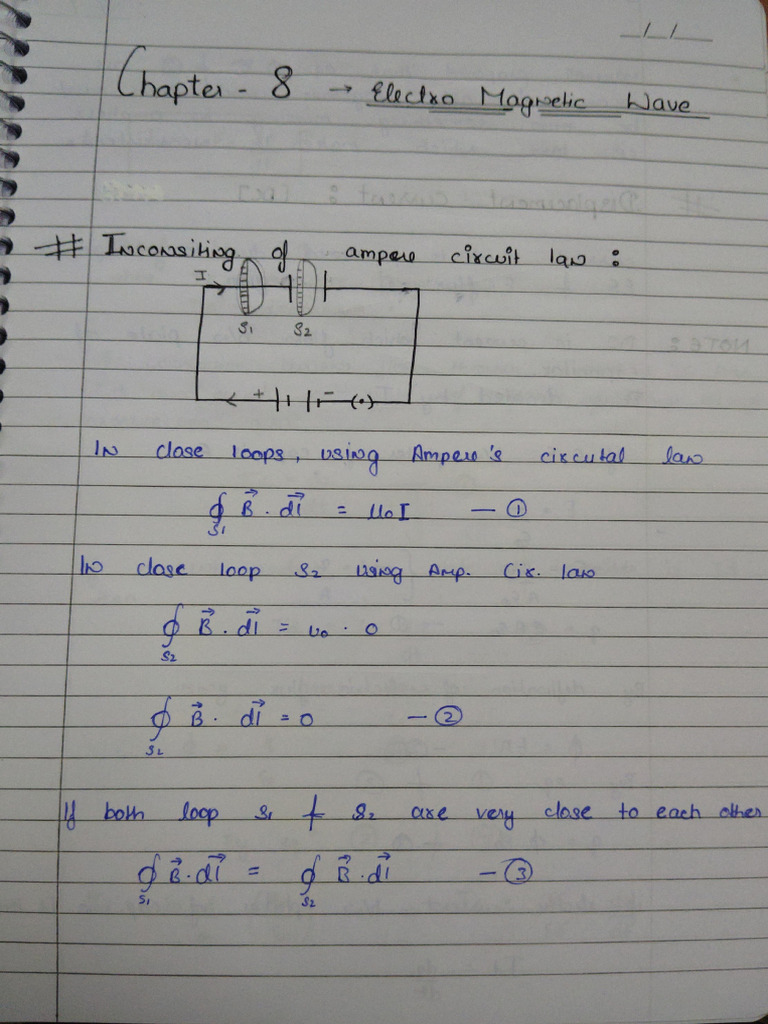 / /
Chapter - 8 → Electro Magnetic Wave
# Inconsiting of ampere circuit law :
I
S1 S2
+ -
In close loops, using Ampere's circutal law
∮S1 B⃗ . dl⃗ = μ0I — ①
In close loop S2 using Amp. Cir. law
∮S2 B⃗ . dl⃗ = μ0 . 0
∮S2 B⃗ . dl⃗ = 0 — ②
If both loop S1 & S2 are very close to each other
∮S1 B⃗ . dl⃗ = ∮S2 B⃗ . dl⃗ — ③